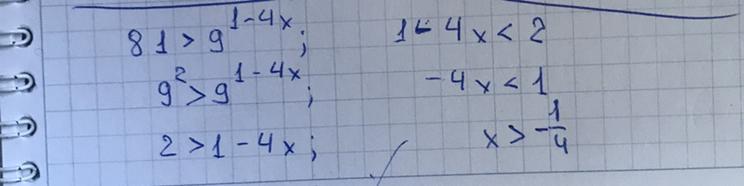 81 > 9^{1-4x};
9^2 > 9^{1-4x};
2 > 1 - 4x;
1 - 4x < 2
-4x < 1
x > -\frac{1}{4}